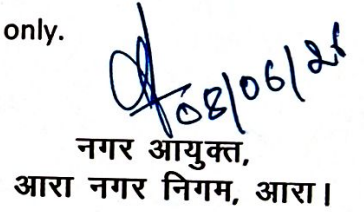 only.
08/06/26
नगर आयुक्त,
आरा नगर निगम, आरा।